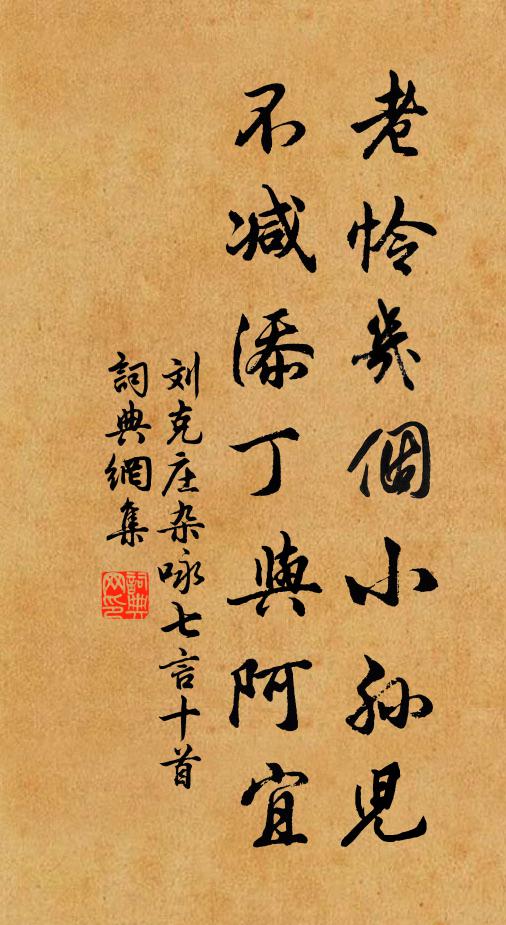 老怜几個小孙児
不减添丁與阿宜
刘克庄杂咏七言十首
詞典網集
詞典
网印